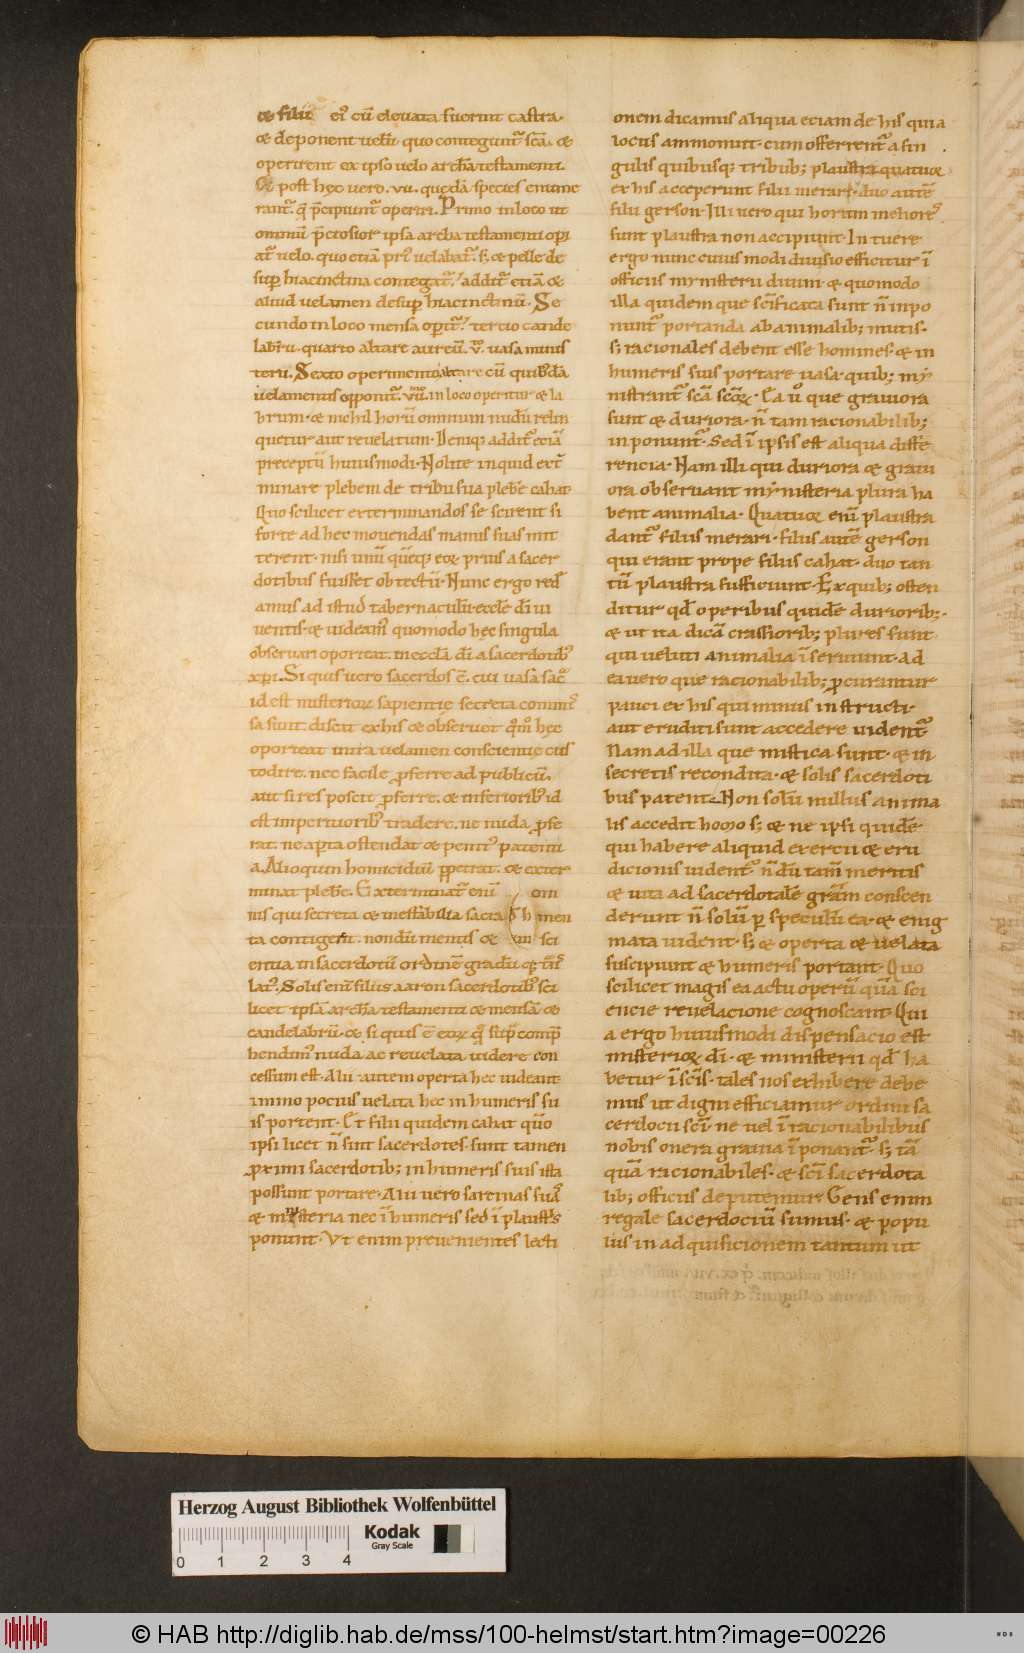 & filii ei' cū eleuata fuerint castra.
& deponent uelū. quo contegunt' scā. &
operient ex ipso uelo archā testamenti.
& post hęc uero .vii. quędā species enume
rant'. q̄ p̄cipiunt' operiri. Primo in loco ut
omniū p̄ciosior ipsa archa testamenti opi
at' uelo. quo etiā pri' uelabat'. s; & pelle de
sup hiacinctina contegat'. additur etiā &
aliud uelamen desup hiacinctinū. Se
cundo in loco mensa opit'. tertio cande
labrū. quarto altare aureū. v° uasa minis
terii. Sexto operimento altare cū quibdā
uelaminis opponit'. in loco operitur & la
brum. & nichil horū omnium nudū relin
quetur aut reuelatum. Deniq; addit' eciā
preceptū huiusmodi. Nolite inquid ext'
minare plebem de tribu sua plebē cahat.
Quo scilicet exterminandos se scirent si
forte ad hec mouendas manus suas mit
terent. nisi unū quęq; eoꝝ prius a sacer
dotibus fuisset obtectū. Nunc ergo red
amus ad istud tabernaculū ecclę dī ui
uentis. & uideam' quomodo hec singula
obseruari oporteat in eccla dī a sacerdotib'
xpi. Si quis uero sacerdos ē. cui uasa sac
id est misterioꝝ sapientię secreta commis
sa sunt. discat ex his & obseruet qm° hec
oporteat intra uelamen conscientię cus
todire. nec facile p̄ferre ad publicū.
aut si res poscit p̄ferre. & inferiorib' id
est imperitiorib' tradere. ne nuda p̄fe
rat. ne apta ostendat & penit' patenti
a. Alioquin homicidiū ppetrat. & exter
minat plebē. Exterminat' enī om
nis qui secreta & ineffabilia sacramen
ta contigerit. nondū meritis & sci
entia in sacerdotii ordinē gradū q; trans
lat'. Solis enī filiis aaron sacerdotib' sci
licet ipsā archā testamenti & mensā &
candelabrū. & si quis ē eoꝝ q̄ sup comp̄
hendim' nuda ac reuelata uidere con
cessum est. Alii autem operta hec uideant
immo pocius uelata hec in humeris su
is portent. Et filii quidem cahat qm̄
ipsi licet n̄ sint sacerdotes. sunt tamen
proximi sacerdotib; in humeris suis ista
possunt portare. Alii uero sarcinas suas
& misteria nec ī humeris sed ī plaustris
ponunt. Vt enim preuenientes lecti
onem dicamus aliqua eciam de his quia
locus ammonuit. cum offerrent' a sin
gulis quibusq; tribub; plaustra quatuor
ex his acceperunt filii merari. duo autē
filii gerson. Illi uero qui horum meliores
sunt plaustra non accipiunt. Intuere
ergo nunc cuius modi diuisio efficitur ī
officiis mynisterii diuini. & quomodo
illa quidem que scīficata sunt n̄ inpo
nunt' portanda ab animalib; mutis.
s; racionales debent esse homines. & in
humeris suis portare uasa. quib; my
nistrant' scā scōꝝ. Ea ū que grauiora
sunt & duriora. n̄ tam racionabilib;
inponunt'. Sed ī ipsis est aliqua diffe
rencia. Nam illi qui duriora & graui
ora obseruant mynisteria plura ha
bent animalia. Quatuor enī plaustra
dant' filiis merari. filiis autē gerson
qui erant prope filiis cahat. duo tan
tū plaustra sufficiunt. Ex quib; osten
ditur qd operibus quidē duriorib;.
& ut ita dicā crassiorib; plures sunt
qui ueluti animalia īseruiunt. Ad
ea uero que racionabilib; p̄curantur
pauci ex his qui minus instructi
aut eruditi sunt accedere uident'
Nam ad illa que mistica sunt. & in
secretis recondita. & solis sacerdoti
bus patent. Non solū nullus anima
lis accedit homo s; & ne ipsi quidē
qui habere aliquid exercii & eru
dicionis uident' n̄ dū tam̄ meritis
& uita ad sacerdotalē grām conscen
derunt n̄ solū p speculū ea. & enig
mata uident. s; & operta & uelata
suscipiunt & humeris portant. Quo
scilicet magis ea actu operū quā sci
encie reuelacione cognoscant. Qui
a ergo huiusmodi dispensacio est
misterioꝝ dī. & ministerii qd ha
betur ī scīs. tales nos exhibere debe
mus ut digni efficiamur ordini sa
cerdocii scī. ne uel ī racionabilibus
nobis onera grauia īponant'. s; tā
quā racionabiles. & scī sacerdota
lib; officiis deputemur. Gens enim
regale sacerdociū sumus. & popu
lus in adquisicionem tantum ut
Herzog August Bibliothek Wolfenbüttel
Kodak
Gray Scale
0 1 2 3 4
© HAB http://diglib.hab.de/mss/100-helmst/start.htm?image=00226